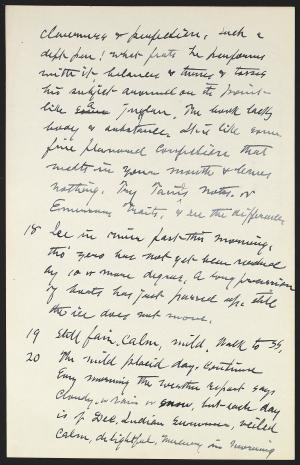 cleverness & perfection, such a
deft pen! what feats he performs
with it, balances & turns & tosses
his subject around on its point
like a juggler. The book lacks
body & substance. It is like some
fine flavored confection that
melts in your mouth & leaves
nothing. Try Taine's notes. or
Emersons Traits, & see the difference
18 Ice in river past this morning,
tho' zero has not yet been reached
by 10 or more degrees. A long procession
of boats has just passed up. still
the ice does not move.
19 Still fair, calm, mild. Walk to
20 The mild placid day, continue
Every morning the weather report says
cloudy, or rain or snow, but each day
is of Dec. Indian summer, veiled
calm, delightful, mercury in morning